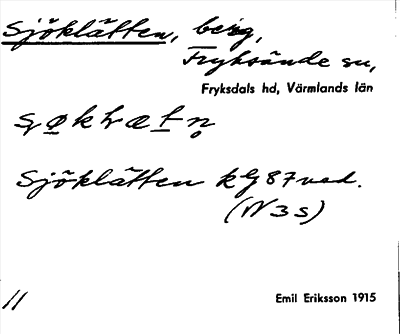 Sjöklätten, berg,
Fryksände sn,
Fryksdals hd, Värmlands län
Sjöklätten kg 87 vad.
(N 3 s)
11
Emil Eriksson 1915